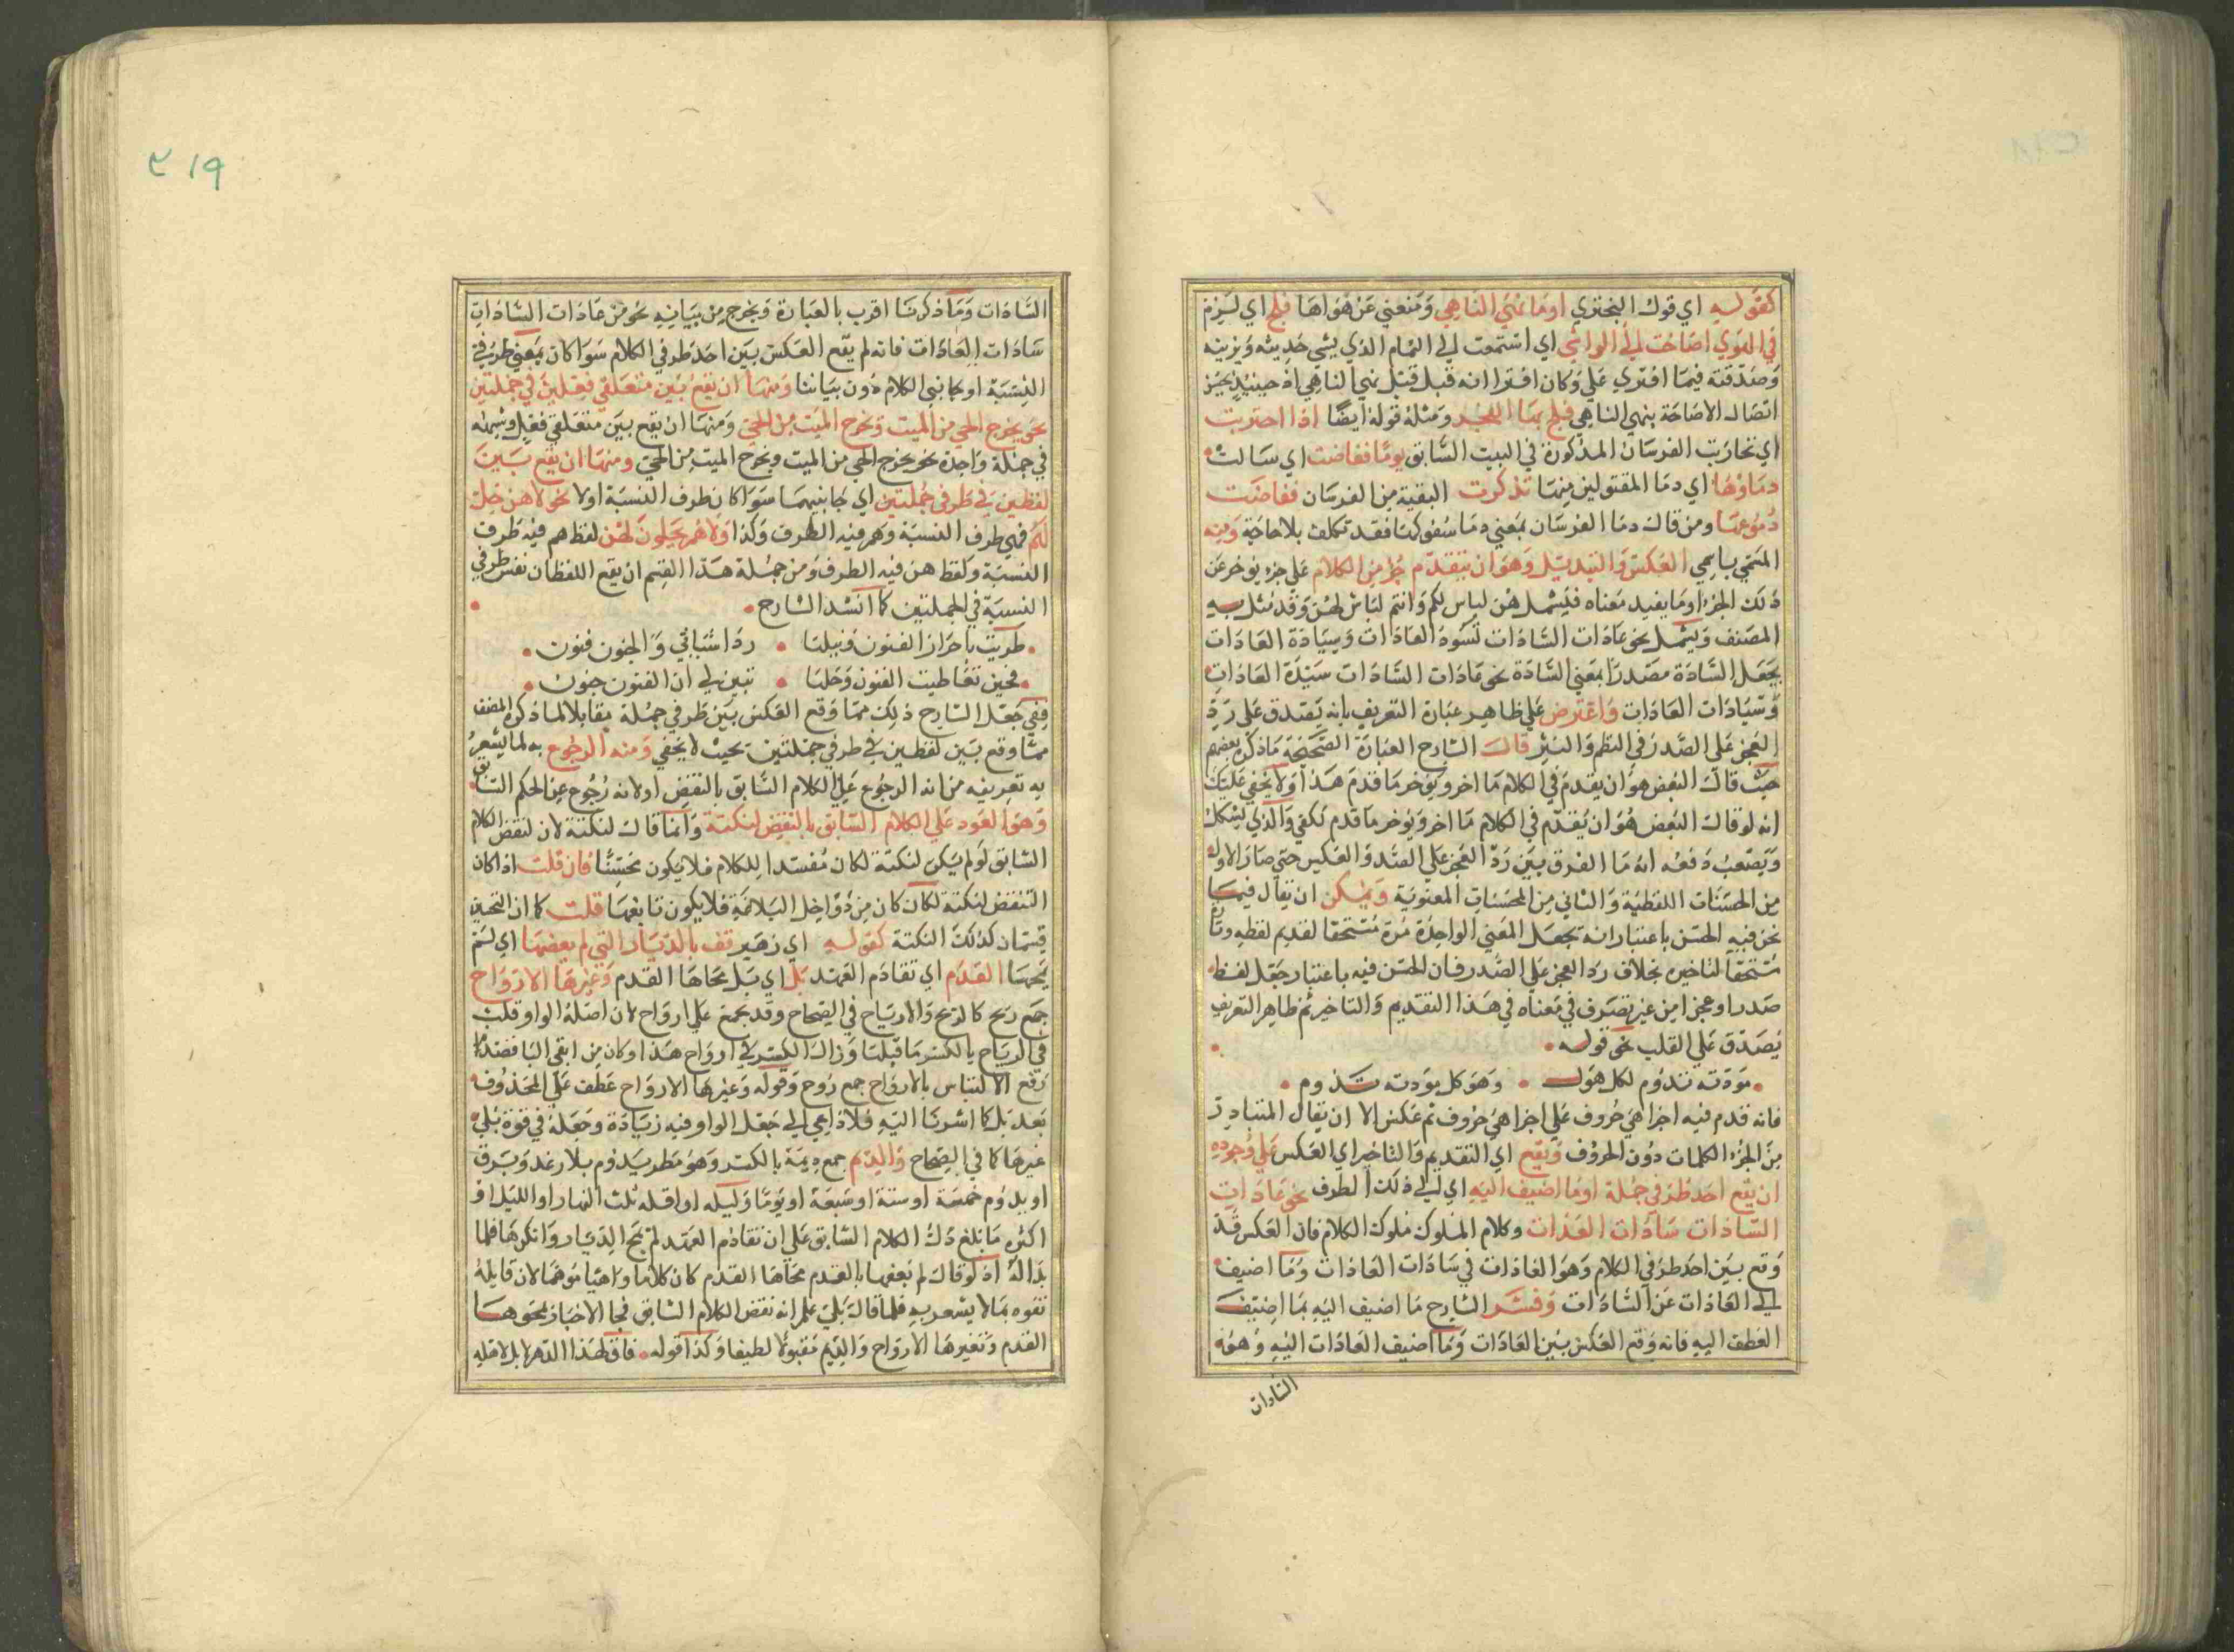 كقوله اي قول البحتري اذا ما نهى الناهي ومنعني عن هواها فلج اي لزم
في الهوي اصاخت الي الواشي اي استمعت الي النمام الذي يشي حديثه ويزينه
وصدقته فيما افتري علي وكان افتراانه قبل نهي الناهي اذ حينيذ يحسن
اتصال الاصاخة بنهي الناهي فلج بها الهجر ومثله قوله ايضا اذا احتربت
اي تحاربت الفرسان المذكورة في البيت السابق يوما ففاضت اي سالت
دماؤها اي دما المقتولين منها تذكرت البقية من الفرسان ففاضت
دموعها ومن قال دما الفرسان بمعني دما سفوكها فقد تكلف بلا حاجة ومنه
المسمي باسمي العكس والتبديل وهو ان يتقدم جزء من الكلام علي جزء يوخر عن
ذلك الجزء او ما يفيد معناه فليشمل هن لباس لكم وانتم لباس لهن وقد مثل به
المصنف ويشمل نحو عادات السادات تسوه العادات وسيادة العادات
بجعل السادة مصدرا بمعني السادة نحو عادات السادات سيدة العادات
وسيادات العادات واعترض علي ظاهر عبارة التعريف بانه يصدق علي رد
العجز علي الصدر في النظم والنثر قال الشارح العبارة الصحيحة ما ذكره بعضهم
حيث قال البعض هو ان يقدم في الكلام ما اخر ويوخر ما قدم هذا ولا يخفي عليك
انه لو قال البعض هو ان يقدم في الكلام ما اخر ويوخر ما قدم لكفي والذي يشكل
ويصعب دفعه انه ما الفرق بين رد العجز علي الصدر والعكس حتي صار الاول
من المحسنات اللفظية والثاني من المحسنات المعنوية ويمكن ان يقال فيما
نحن فيه الحسن باعتبار انه يجعل المعني الواحد مرة مستحقا لتقديم لفظه وتارة
مستحقا لتاخيره بخلاف رد العجز علي الصدر فان الحسن فيه باعتبار جعل لفظ
صدرا وعجزا من غير تصرف في معناه في هذا التقديم والتاخير ثم ظاهر التعريف
يصدق علي القلب نحو قوله
مودته تدوم لكل هول وهو كل مودته تدوم
فانه قدم فيه اجزا هي حروف علي اجزا هي حروف ثم عكس الا ان يقال المتبادر
من الجزء الكلمات دون الحروف ويقع اي التقديم والتاخير اي العكس علي وجوه
ان يقع احد طرفي جملة او ما اضيف اليه اي الي ذلك الطرف نحو عادات
السادات سادات العادات وكلام الملوك ملوك الكلام فان العكس قد
وقع بين احد طرفي الكلام وهو العادات في سادات العادات وما اضيف
الي العادات عن السادات وفسر الشارح ما اضيف اليه بما اضيف
العطف اليه فانه وقع العكس بين العادات وما اضيف العادات اليه وهو
السادات
السادات وما ذكرنا اقرب بالعبارة ويخرج من بيانه نحو من عادات السادات
سادات العادات فانه لم يقع العكس بين احد طرفي الكلام سوا كان بمعني طرفي
النسبة او جانبي الكلام دون بياننا ومنها ان يقع بين متعلقي فعلين في جملتين
نحو يخرج الحي من الميت ويخرج الميت من الحي ومنها ان يقع بين متعلقي فعل وشبهه
في جملة واحدة نحو يخرج الحي من الميت ويخرج الميت من الحي ومنها ان يقع بين
لفظين في طرفي جملتين اي جانبيهما سوا كان طرف النسبة اولا نحو لا هن حل
لهم فهي طرف النسبة وهم فيه الطرف وكذا ولا هم يحلون لهن لفظ هم فيه طرف
النسبة ولفظ هن فيه الطرف ومن جملة هذا القسم ان يقع اللفظان نفس طرفي
النسبة في الجملتين كما انشد الشارح
طويت باحراز الفنون ونيلها رداء شبابي والجنون فنون
فحين تعاطيت الفنون وحلها تبين لي ان الفنون جنون
ففي جعل الشارح ذلك مما وقع العكس بين طرفي جملة مقابلا لما ذكره المصنف
مما وقع بين لفظين في طرفي جملتين بحيث لا يخفي ومنه الرجوع به لما يشعر
به تعريفه من انه الرجوع علي الكلام السابق بالنقض او لانه رجوع عن الحكم السابق
وهو العود علي الكلام السابق بالنقض لنكتة وانما قال لنكتة لان لنقض الكلام
السابق لو لم يكن لنكتة لكان مفسدا للكلام فلا يكون محسنا فان قلت اذا كان
النقض لنكتة لكان كان من دواخل البلاغة فلا يكون تابعها قلت كما ان التحسين
قسمان كذلك النكتة كقوله اي زهير قف بالديار التي لم يعفها اي لم
يمحها القدم اي تقادم العهد بلي اي بلي محاها القدم وغيرها الارواح
جمع ريح كالريح والارياح في الصحاح وقد يجمع علي ارواح لان اصله الواو قلبت
في الرياح يا لكسر ما قبلها وزال الكسر في ارواح هذا وكان من ابقي اليا قصد
رفع الالتباس بالارواح جمع روح وقوله وغيرها الارواح عطف علي المحذوف
بعد بلي كما اشرنا اليه فلا داعي الي جعل الواو فيه زيادة وجعله في قوة بلي
غيرها كما في الصحاح والديم جمع ديمة بالكسر وهو مطر يدوم بلا رعد وبرق
او يدوم خمسة او ستة او سبعة او يوما وليلة او اقله ثلث النهار او الليل او
اكثره ما بلغ دل الكلام السابق علي ان تقادم العهد لم يمح الديار وانكرها فلما
بدا له اذ لو قال لم يعفها بالقدم محاها القدم كان كلاما واهيا موهما لان قايله
تفوه بما لا يشعر به فلما قال بلي علم انه نقض الكلام السابق فجا الاخبار بمحوها
القدم وتغيرها الارواح والديم مقبولا لطيفا وكذا قوله فاف لهذا الدهر لا بل لاهله
٢١٩